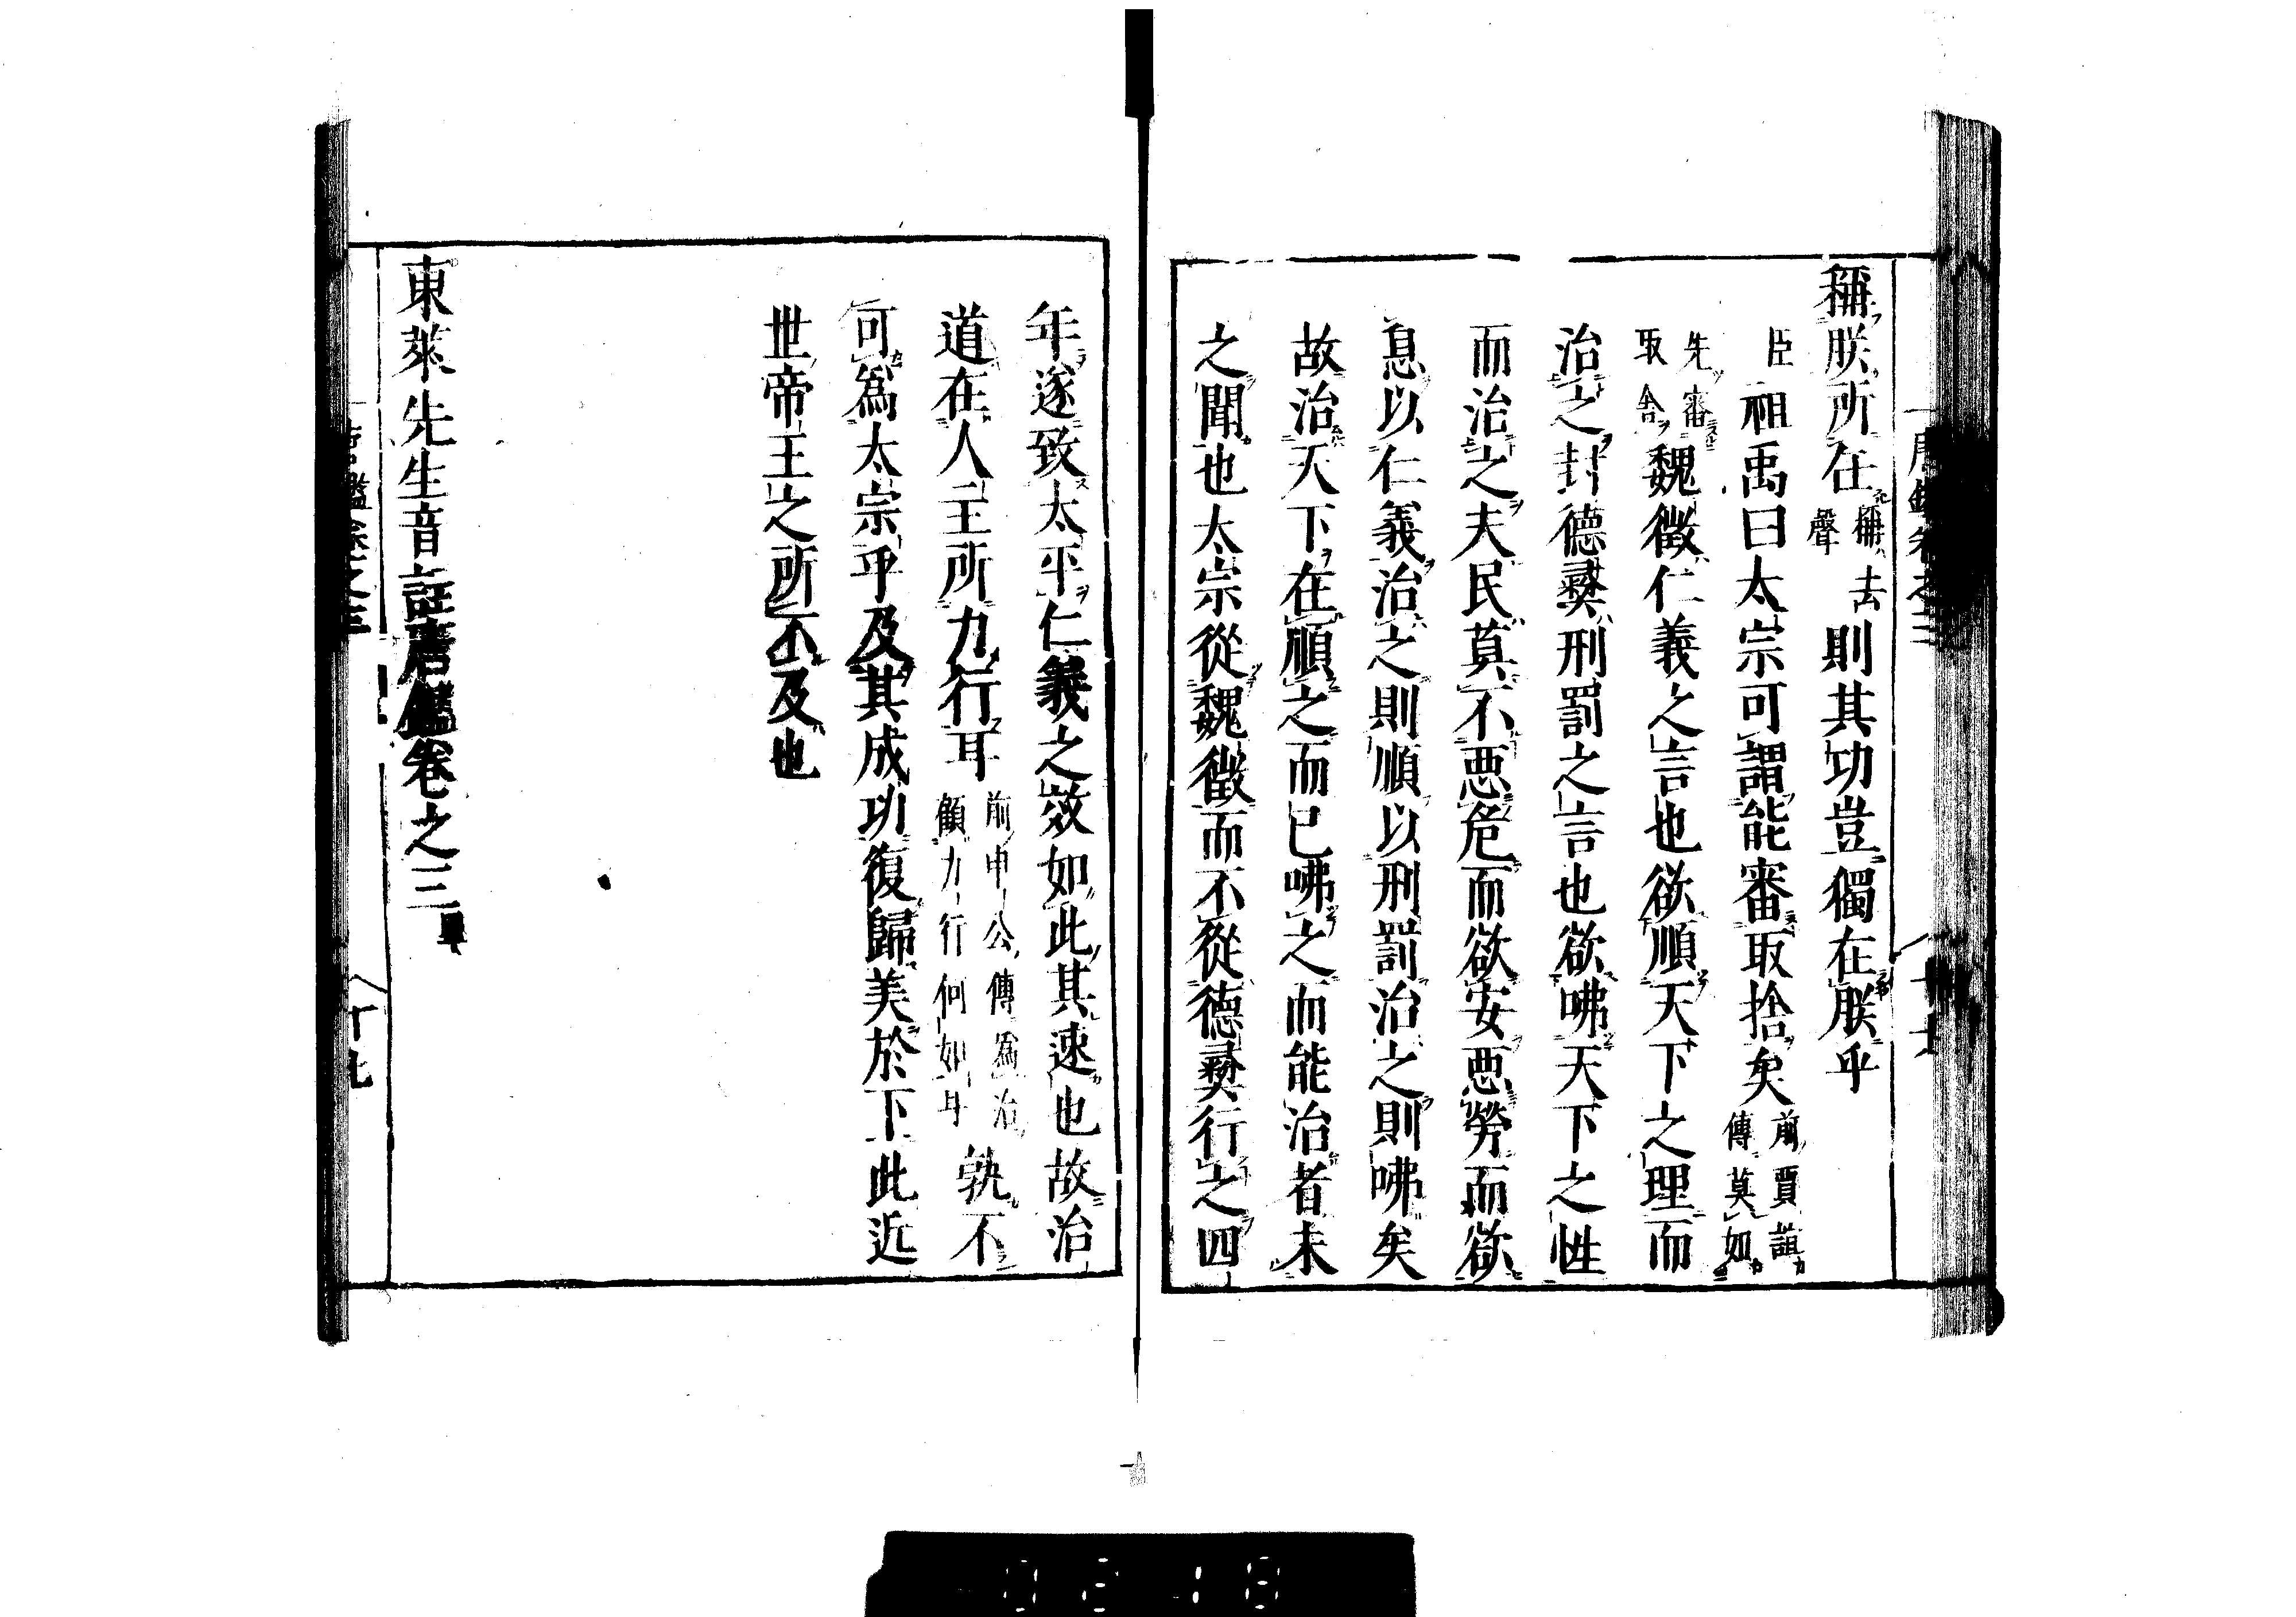 稱朕所任稱去聲則其功豈獨在朕乎
臣祖禹曰太宗可謂能審取捨矣前賈誼傳莫如
先審取舍魏徵仁義之言也欲順天下之理而
治之封德彛刑罰之言也欲咈天下之性
而治之夫民莫不惡危而欲安惡勞而欲
息以仁義治之則順以刑罰治之則咈矣
故治天下在順之而已咈之而能治者未
之聞也太宗從魏徵而不從德彛行之四
年遂致太平仁義之效如此其速也故治
道在人主所力行耳前申公傳爲治顧力行何如耳孰不
可爲太宗乎及其成功復歸美於下此近
世帝王之所不及也
東萊先生音註唐鑑卷之三畢
十九